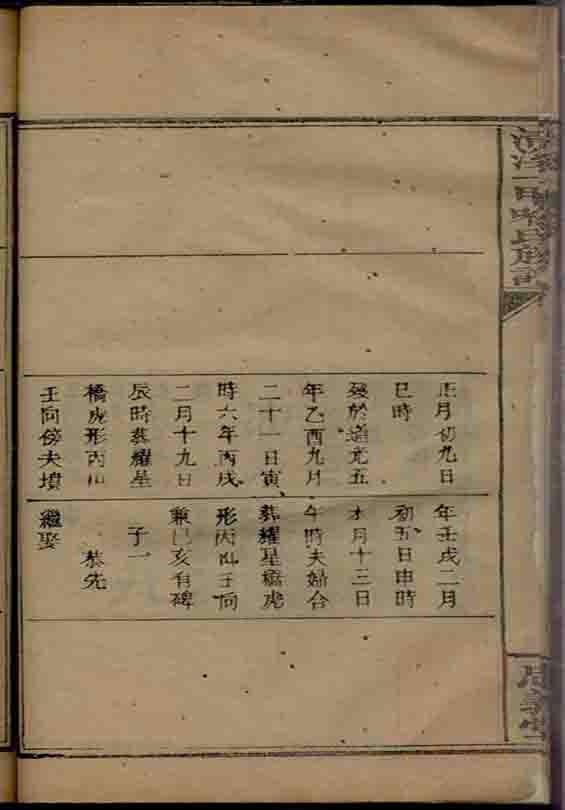 正月初九日
巳時
歿於道光五
年乙酉九月
二十一日寅
時六年丙戌
二月十九日
辰時葬耀星
橋虎形丙山
壬向傍夫墳
年壬戌二月
初五日申時
本月十三日
午時夫婦合
葬耀星橋虎
形丙山壬向
兼巳亥有碑
子一
恭先
繼娶
氏族譜